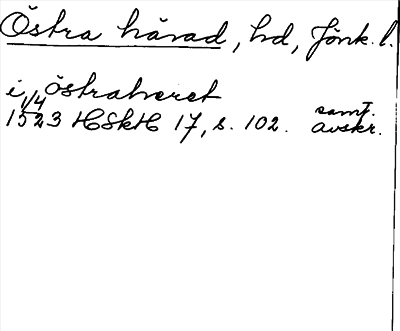 Östra härad, hd, Jönk. l.
i östraheret
1/4 1523 HSkH 17, s. 102. samt. avskr.